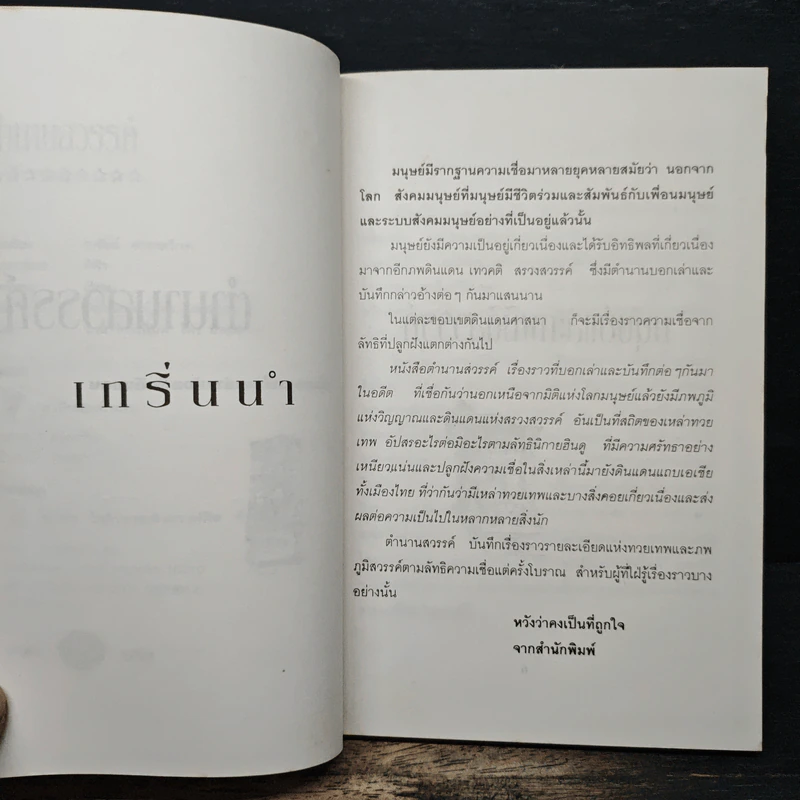 เกริ่นนำ
มนุษย์มีรากฐานความเชื่อมาหลายยุคหลายสมัยว่า นอกจาก
โลก สังคมมนุษย์ที่มนุษย์มีชีวิตร่วมและสัมพันธ์กับเพื่อนมนุษย์
และระบบสังคมมนุษย์อย่างที่เป็นอยู่แล้วนั้น
มนุษย์ยังมีความเป็นอยู่เกี่ยวเนื่องและได้รับอิทธิพลที่เกี่ยวเนื่อง
มาจากอีกภพดินแดน เทวคติ สรวงสวรรค์ ซึ่งมีตำนานบอกเล่าและ
บันทึกกล่าวอ้างต่อๆ กันมาแสนนาน
ในแต่ละขอบเขตดินแดนศาสนา ก็จะมีเรื่องราวความเชื่อจาก
ลัทธิที่ปลูกฝังแตกต่างกันไป
หนังสือตำนานสวรรค์ เรื่องราวที่บอกเล่าและบันทึกต่อๆกันมา
ในอดีต ที่เชื่อกันว่านอกเหนือจากมิติแห่งโลกมนุษย์แล้วยังมีภพภูมิ
แห่งวิญญาณและดินแดนแห่งสรวงสวรรค์ อันเป็นที่สถิตของเหล่าทวย
เทพ อัปสรอะไรต่อมิอะไรตามลัทธินิกายฮินดู ที่มีความศรัทธาอย่าง
เหนียวแน่นและปลูกฝังความเชื่อในสิ่งเหล่านี้มายังดินแดนแถบเอเซีย
ทั้งเมืองไทย ที่ว่ากันว่ามีเหล่าทวยเทพและบางสิ่งคอยเกี่ยวเนื่องและส่ง
ผลต่อความเป็นไปในหลากหลายสิ่งนัก
ตำนานสวรรค์ บันทึกเรื่องราวรายละเอียดแห่งทวยเทพและภพ
ภูมิสวรรค์ตามลัทธิความเชื่อแต่ครั้งโบราณ สำหรับผู้ที่ใฝ่รู้เรื่องราวบาง
อย่างนั้น
หวังว่าคงเป็นที่ถูกใจ
จากสำนักพิมพ์